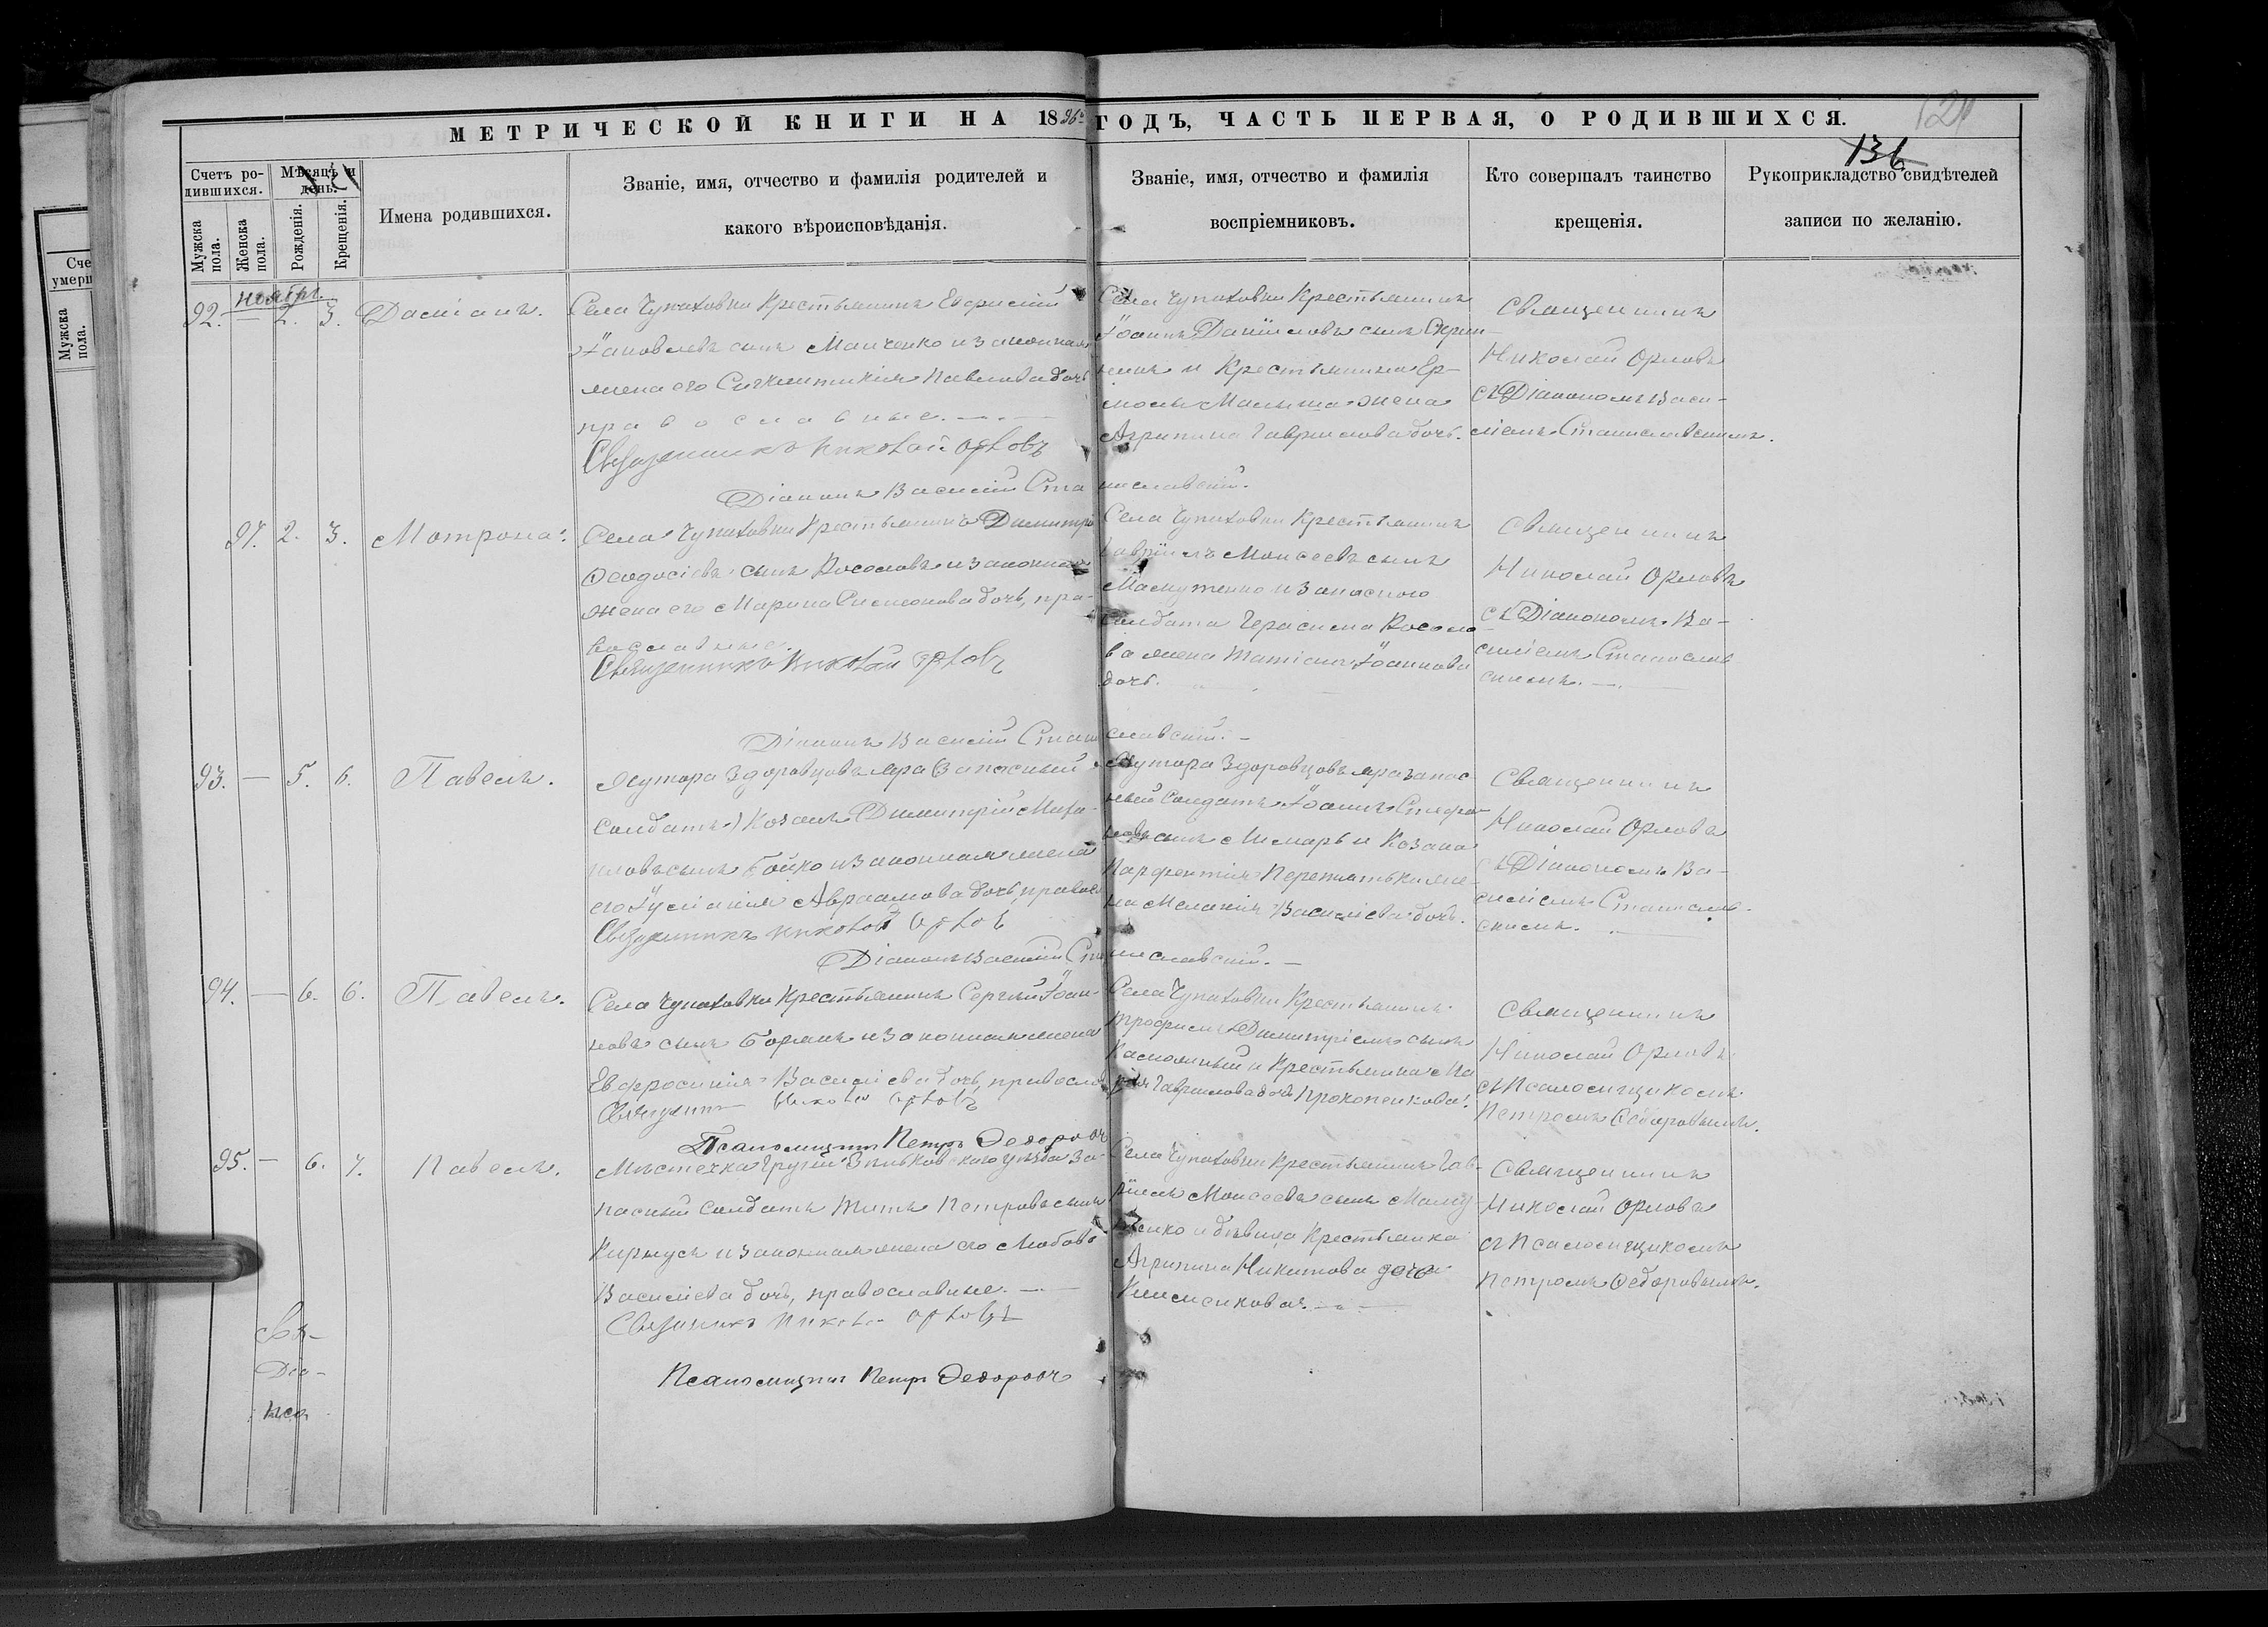 МЕТРИЧЕСКОЙ КНИГИ НА 1896 ГОДЪ, ЧАСТЬ ПЕРВАЯ, О РОДИВШИХСЯ.
136
Счетъ ро-
дившихся.
Мужска пола.
Женска пола.
Мѣсяцъ и
день.
Рожденія.
Крещенія.
Имена родившихся.
Званіе, имя, отчество и фамилія родителей и
какого вѣроисповѣданія.
Званіе, имя, отчество и фамилія
воспріемниковъ.
Кто совершалъ таинство
крещенія.
Рукоприкладство свидѣтелей
записи по желанію.
Сче
умерш
Мужска
пола.
92. — 2. 3.
Даміанъ.
Села Чупаховки Крестьянинъ
сынъ Манченко и законная
жена его Синклитикія Павлова дочь
православные.
Священникъ Николай Орловъ
Діаконъ Василій Станиславскій.
Села Чупаховки Крестьянинъ
Іоаннъ Даніиловъ сынъ
и Крестьянина Ер-
жена
Агрипина Гавриилова дочь.
Священникъ
Николай Орловъ
съ Діакономъ Васи-
ліемъ Станиславскимъ.
97. 2. 3.
Мотрона.
Села Чупаховки Крестьянинъ Димитрій
Феодосіевъ сынъ Косоловъ и законная
жена его Марина Симеонова дочь, пра-
вославные.
Священникъ Николай Орловъ
Діаконъ Василій Станиславскій.
Села Чупаховки Крестьянинъ
Гавріилъ Моисеевъ сынъ
и запасного
Солдата Герасима Косоло-
ва жена Татіана Іоаннова
дочь.
Священникъ
Николай Орловъ
съ Діакономъ Ва-
силіемъ Станислав-
скимъ.
93. — 5. 6.
Павелъ.
Хутора Здоровцова Яра (Запасный
Солдатъ) Козакъ Димитрій Миха-
иловъ сынъ Бойко и законная жена
его Іуліанія Авраамова дочь, правосл
Священникъ Николай Орловъ
Діаконъ Василій Станиславскій.
Хутора Здоровцова Яра запас-
ный Солдатъ Іоаннъ Стефа-
новъ сынъ и Козака
Парфентія Перетятька же-
на Меланія Василіева дочь.
Священникъ
Николай Орловъ
съ Діакономъ Ва-
силіемъ Станислав-
скимъ.
94. — 6. 6.
Павелъ.
Села Чупаховки Крестьянинъ Сергій Іоан-
новъ сынъ и законная жена
Евфросинія Василіева дочь, правосл
Николай Орловъ
Псаломщикъ Петръ Федоровъ
Села Чупаховки Крестьянинъ
Трофимъ Димитріевъ сынъ
и Крестьянка Ма
рія Гавриилова дочь Прокопенкова.
Священникъ
Николай Орловъ
съ Псаломщикомъ
Петромъ Федоровымъ.
95. — 6. 7.
Павелъ.
Мѣстечка Груни Зѣньковского уѣзда За-
пасный Солдатъ Титъ Петровъ сынъ
и законная жена его Любовь
Василіева дочь, православные.
Священникъ Николай Орловъ
Псаломщикъ Петръ Федоровъ
Села Чупаховки Крестьянинъ Гав-
ріилъ Моисеевъ сынъ
и дѣвица Крестьянка
Агрипина Никитова дочь
Священникъ
Николай Орловъ
съ Псаломщикомъ
Петромъ Федоровымъ.
Свя-
Діа-
Пса